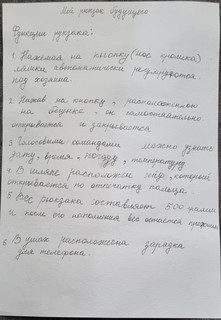 Мой рюкзак будущего
Функции рюкзака:
1. Нажимая на кнопку (нос кролика)
лямки автоматически регулируются
под хозяина.
2. Нажав на кнопку, расположенную
на ободке - он самостоятельно
открывается и закрывается
3. Голосовыми командами можно узнать
дату, время, погоду, температуру
4. В шляпе расположен который
открывается по отпечатку пальца
5. Вес рюкзака составляет 500 грамм
и после его наполнения вес остается прежним
6. В ушах расположена зарядка
для телефона.